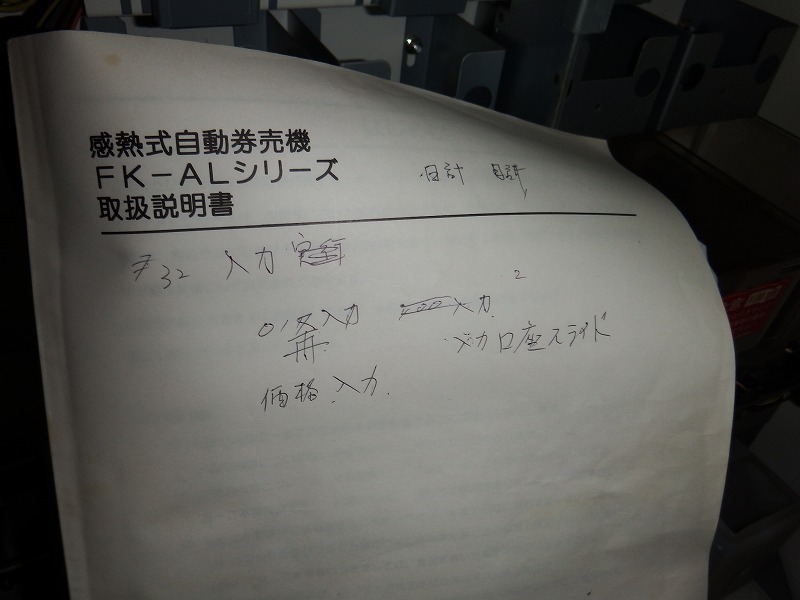 感熱式自動券売機
FK-ALシリーズ 日計
取扱説明書
32 入力
入力 入力 2
口座スライド
価格入力